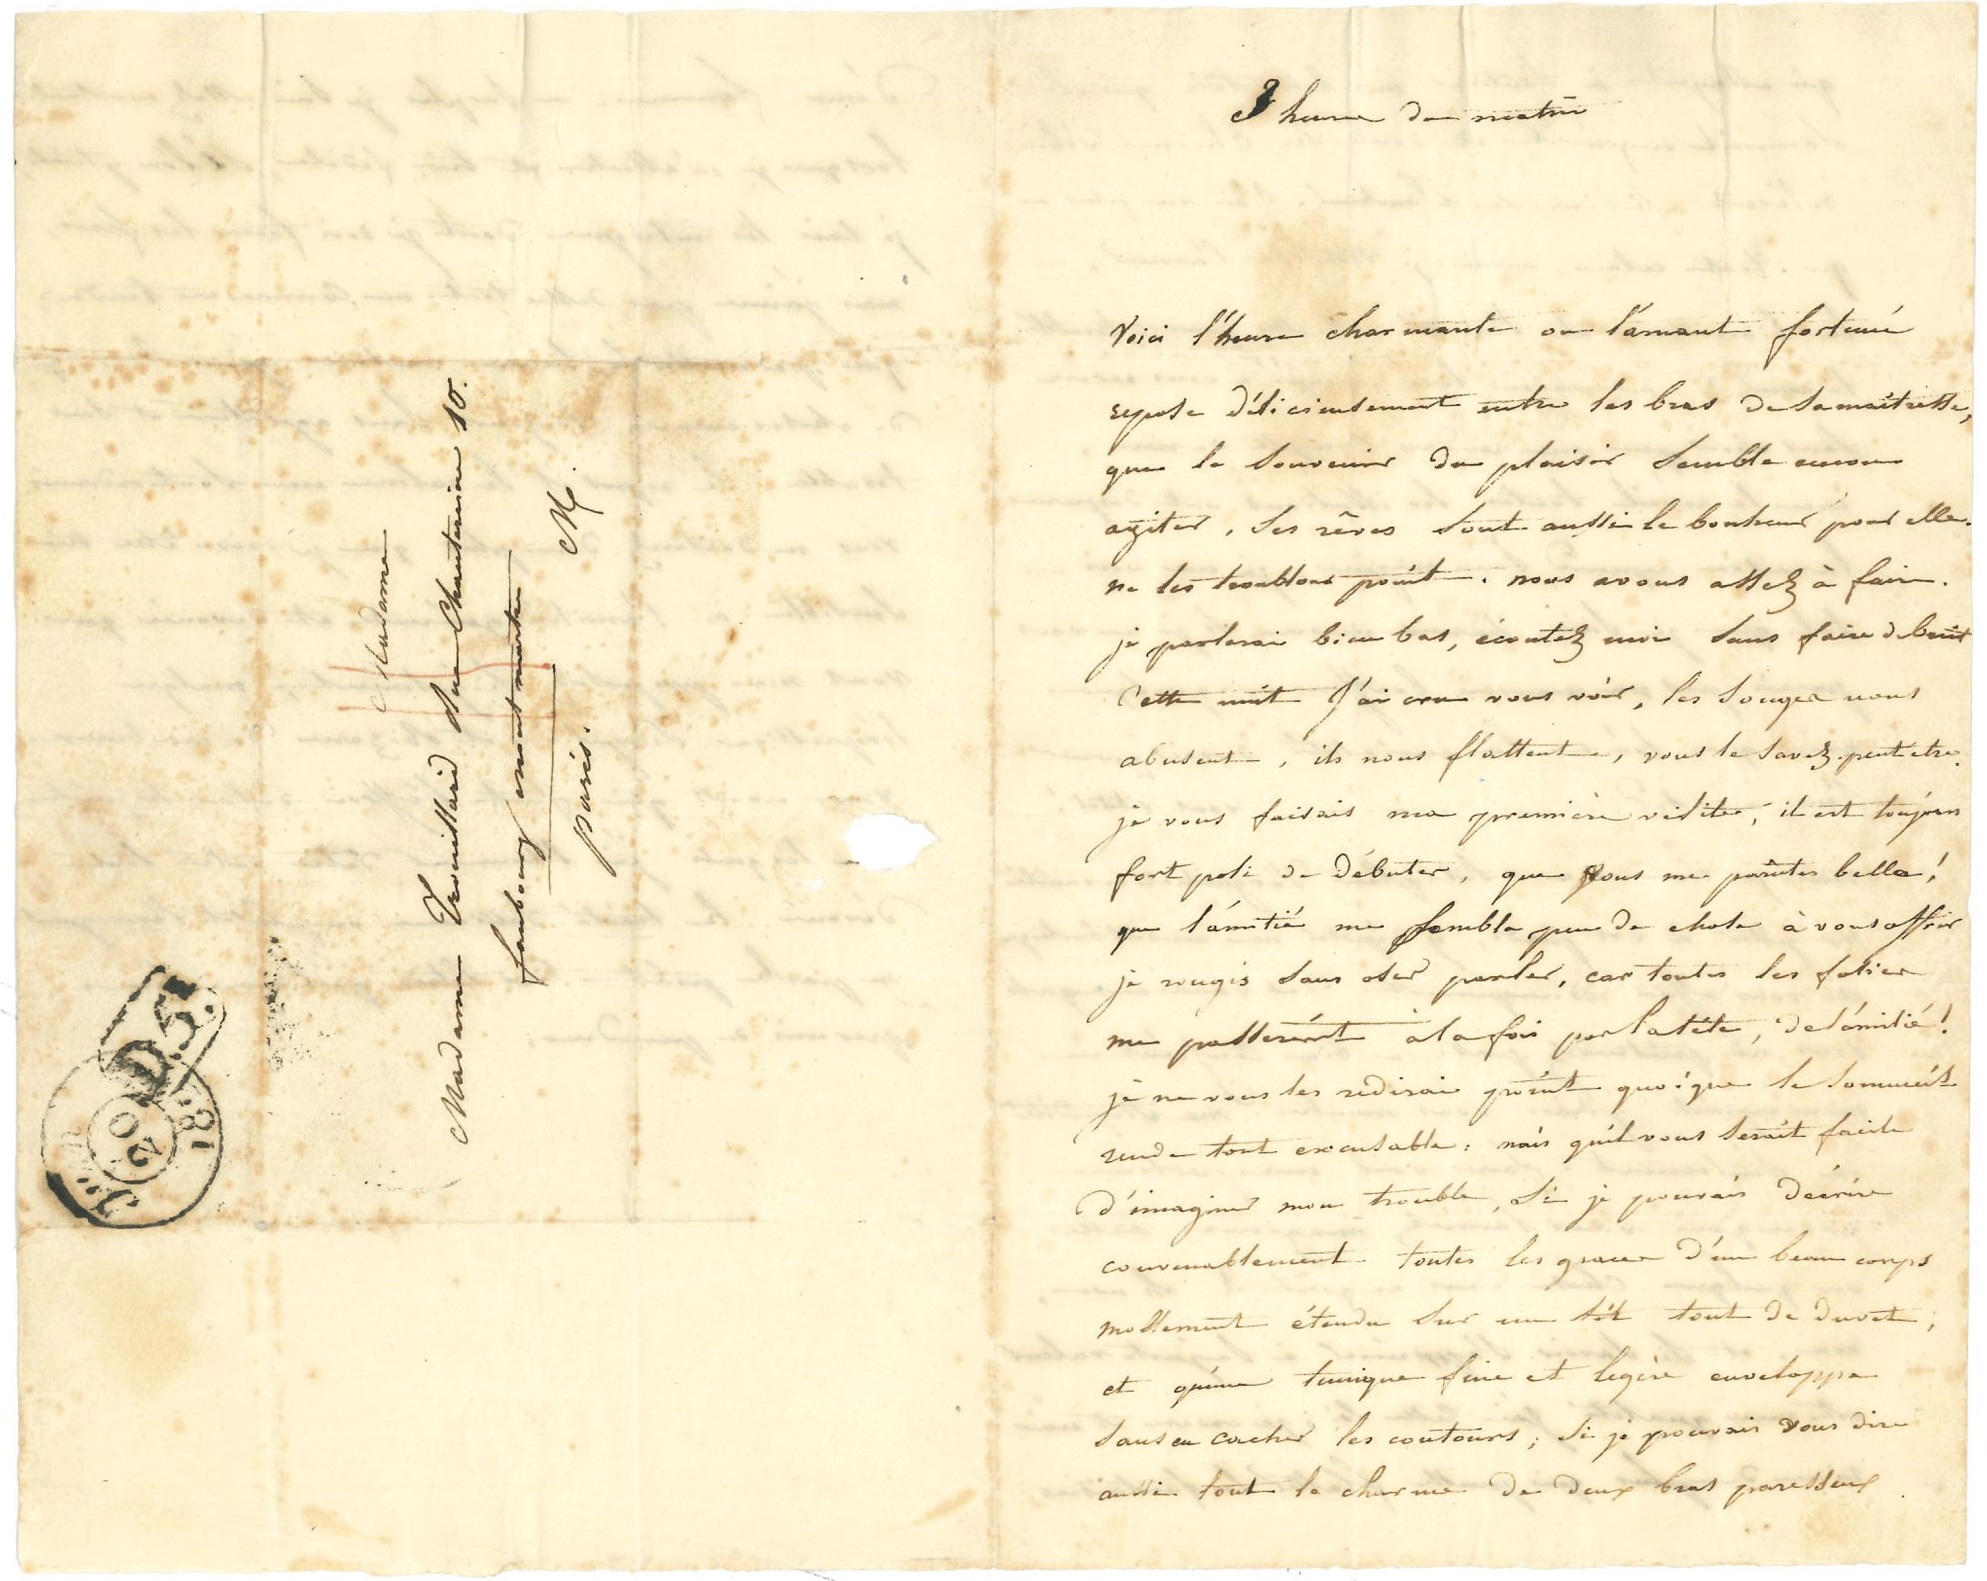 Madame
Madame Trouillard rue Chantereine 10.
faubourg montmartre
M.
paris.
D.5.
20
3 heure du matin
Voici l'heure charmante ou l'amant fortuné
repose délicieusement entre les bras de sa maitresse,
que le souvenir du plaisir semble encore
agiter, ses rêves sont aussi le bonheur pour elle.
ne les troublons point. nous avons assez à faire.
je parlerai bien bas, écoutez moi sans faire de bruit
Cette nuit J'ai cru vous voir, les songes nous
abusent, ils nous flattent, vous le savez peut etre.
je vous faisais ma première visite, il est toujours
fort poli de débuter, que vous me parûtes belle!
que l'amitié me sembla peu de chose à vous offrir
je rougis sans oser parler, car toutes les folies
me passerent à la fois par la tête, de l'amitié!
je ne vous les redirai point quoique le sommeil
rende tout excusable: mais qu'il vous serait facile
d'imaginer mon trouble, si je pouvais décrire
convenablement toutes les graces d'un beau corps
mollement étendu sur un lit tout de duvet,
et qu'une tunique fine et legère enveloppe
sans en cacher les contours; si je pouvais vous dire
aussi tout le charme de deux bras paresseux